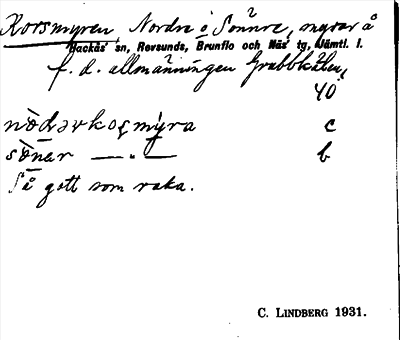 Korsmyren, Nordre o Sönnre, myrar å
Hackås sn, Revsunds, Brunflo och Näs tg, Jämtl. l.
f. d. allmänningen Grabbkålen,
40
c
b
Så gott som raka.
C. LINDBERG 1931.